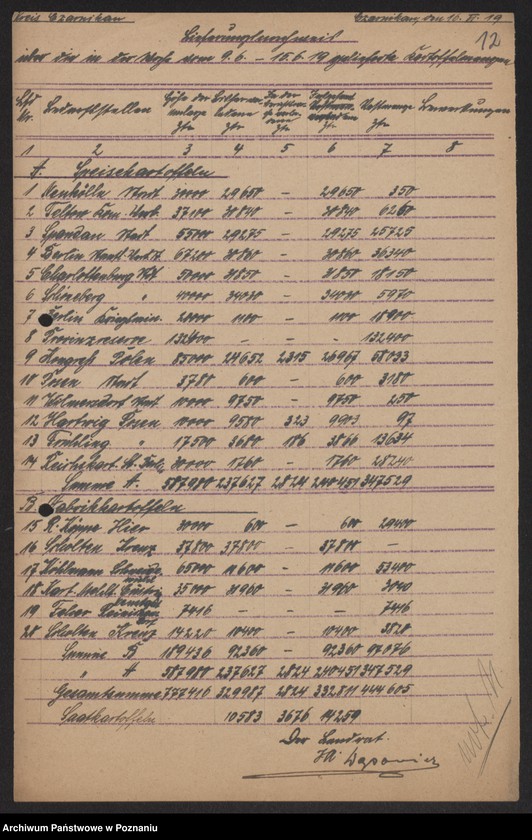 Kreis Czarnikau Czarnikau, den 16. VI. 19
12
Lieferungsnachweis
über die in der Woche vom 9.6. – 15.6.19 gelieferten Kartoffelmengen
Lfd Nr. Bedarfsstellen Höhe der Lieferungsauflage Ztr Ztr In der Ztr Ztr Ztr Bemerkungen
1 2 3 4 5 6 7 8
A. Speisekartoffeln
1 Neukölln Stadt 30000 29650 – 29650 350
2 Teltow Kom. Verb. 37100 30840 – 30840 6260
3 Spandau Stadt 55000 29275 – 29275 25725
4 Berlin 67200 30860 – 30860 36340
5 Charlottenburg 50000 31850 – 31850 18150
6 Schöneberg " 40000 34030 – 34030 5970
7 Berlin 20000 1100 – 1100 18900
8 Provinzreserve 132400 – – 132400
9 Kongreß Polen 85000 24652 2315 26967 58033
10 Posen Stadt 3780 600 – 600 3180
11 Wilmersdorf Stadt 10000 9750 – 9750 250
12 Hartwig Posen 10000 9580 323 9903 97
13 Frühling " 17500 3680 186 3866 13634
14 Reichskart. St. 30000 1760 – 1760 28240
Summe A. 587980 237627 2824 240451 347529
B. Fabrikkartoffeln
15 R. Hier 30000 600 – 600 29400
16 Scholten Kreuz 37800 37800 – 37800 –
17 65000 11600 – 11600 53400
18 Kart. 35000 31960 – 31960 3040
19 7416 – – – 7416
20 Scholten Kreuz 14220 10400 – 10400 3820
Summe B 189436 92360 – 92360 97076
" A 587980 237627 2824 240451 347529
Gesamtsumme 777416 329987 2824 332811 444605
Saatkartoffeln 10583 3676 14259
Der Landrat.
JA
Archiwum Państwowe w Poznaniu